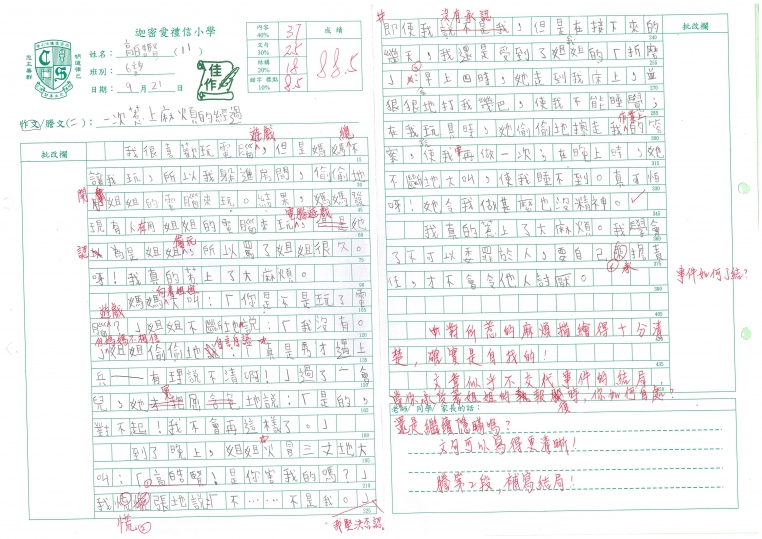 迦密愛禮信小學
姓名：高皓賢(11)
班別：
日期：9月21日
內容 40% 37
文句 30% 25
結構 20% 18
錯字 標點 10% 8.5
成績
88.5
佳作
作文/謄文(二)：一次惹上麻煩的經過
批改欄
遊戲 總
我很喜歡玩電腦，但是媽媽不
讓我玩，所以我躲進房間，偷偷地
用姐姐的電腦來玩。結果，媽媽發
電腦遊戲
現有人用姐姐的電腦來玩，她
認為是姐姐，所以罵了姐姐很久。
呀！我真的惹上了大麻煩。
向着姐姐
媽媽大叫：「你是不是玩了電
遊戲
腦？」姐姐不斷地說：「我沒有。
但媽媽不相信
」姐姐偷偷地自言自語：「真是秀才遇上
兵——有理說不清啊！」過了一會
兒，她地說：「是的，
對不起！我不會再這樣了。」
到了晚上，姐姐火冒三丈地大
叫：「高皓賢！是你害我的嗎？」
我慌張地說：「不……不是我。」
慌
我堅決否認。
批改欄
沒有承認
即使我說不是我，但是在接下來的
幾天，我還是受到了姐姐的「折磨
」。早上四時，她走到我床上，並
狠狠地打我嘴巴，使我不能睡覺；
作業上
在我玩具時，她偷偷地擦走我的答
案，使我再做一次；在晚上時，她
不斷地大叫，使我睡不到。真可怕
呀！她令我做甚麼也沒精神。
我真的惹上了大麻煩。我學會
了不可以委罪於人，要自己承擔責
任，才不會令他人討厭。
事件如何了結？
對所惹的麻煩描繪得十分清
楚，確實是自找的！
文章似乎不交代事件的結局
當你承受着姐姐的報復時，你如何自處？
老師/同學/家長的話：
還是繼續隱瞞嗎？
文句可以寫得更清晰！
謄第2段，補寫結局！